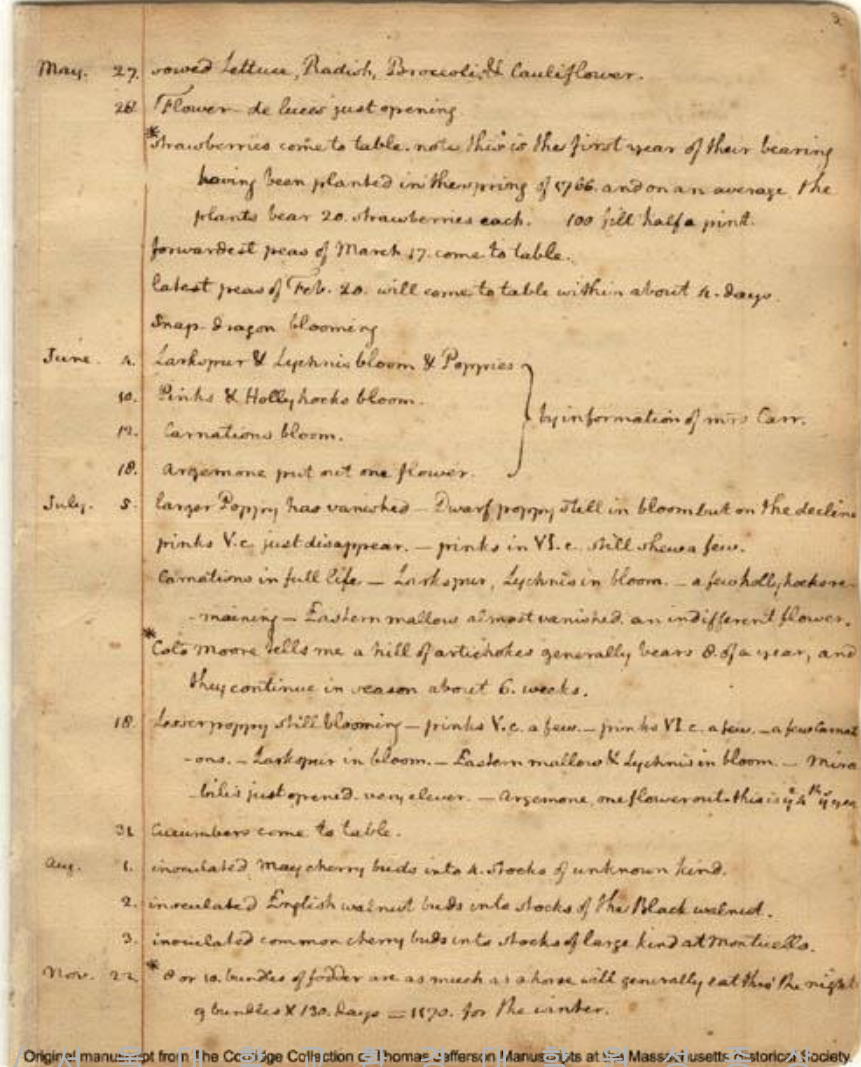 May. 27. sowed Lettuce, Radish, Broccoli, & Cauliflower.
28. Flower-de luces just opening
*strawberries come to table. note this is the first year of their bearing
having been planted in the spring of 1766. and on an average the
plants bear 20. strawberries each. 100 fill half a pint.
forwardest peas of March 17. come to table.
latest peas of Feb. 20. will come to table within about 4. days.
Snap-dragon blooming
June. 4. Larkspur & Lychnis bloom & Poppies
10. Pinks & Hollyhocks bloom.
by information of mrs Carr.
12. Carnations bloom.
18. Argemone put out one flower.
July. 5. larger Poppy has vanished — Dwarf poppy still in bloom but on the decline
pinks V.c. just disappear. — pinks in VI.c. still shew a few.
Carnations in full life — Larkspur, Lychnis in bloom. — a few hollyhocks re-
-maining — Eastern mallow almost vanished. an indifferent flower.
*Colo Moore tells me a hill of artichokes generally bears 8. of a year, and
they continue in season about 6. weeks.
18. Lesser poppy still blooming — pinks V.c. a few. — pinks VI.c. a few. — a few Carnat
-ons. — Larkspur in bloom. — Eastern mallow & Lychnis in bloom. — Mira
-bilis just opened. very clever. — Argemone, one flower out. this is ye 4th ys year
31. Cucumbers come to table.
Aug. 1. inoculated May cherry buds into 4. stocks of unknown kind.
2. inoculated English walnut buds into stocks of the Black walnut.
3. inoculated common cherry buds into stocks of large kind at Monticello.
Nov. 22. * 8 or 10. bundles of fodder are as much as a horse will generally eat thro' the night
9 bundles X 130. days = 1170. for the winter.
Original manuscript from The Coolidge Collection of Thomas Jefferson Manuscripts at the Massachusetts Historical Society.